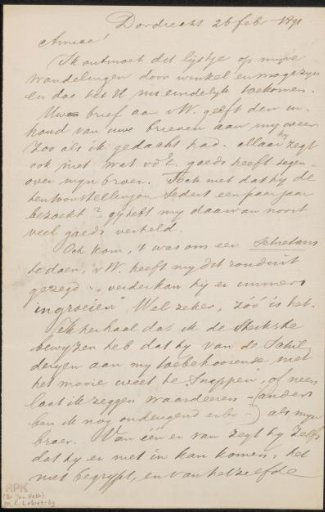 Dordrecht 26 febr. 1891
Amice!
Ik ontmoet dit lijstje op mijne
wandelingen door winkel en magazijn
en das het U nu eindelijk toekomen.
Uwe brief aan v W. geeft den in-
houd van uwe brieven aan my weer
zoo als ik gedacht had. allaen hy zegt
ook niet wat v d E. goeds heeft tegen-
over myn broer. met dat hy de
tentoonstellingen sedert een paar jaar
bezocht? gy hebt my daarvan nooit
veel goeds verteld.
Och kom, 't was om een
te doen, v W. heeft my dit ronduit
gezegd „verder kan hy er immers
ingroeien" Wel zeker, zóó is het.
Ik herhaal dat ik de sterkste
bewyzen heb dat hy van de schil
deryen aan my toebehoorende niet
het mooie weet te snappen, of neen
laat ik zeggen waardeeren – (anders
ben ik nog ondeugend erbij) als myn
broer. Van één er van zegt hy zelfs
dat hy er niet in kan komen, het
niet begrypt, en van hetzelfde
RPK